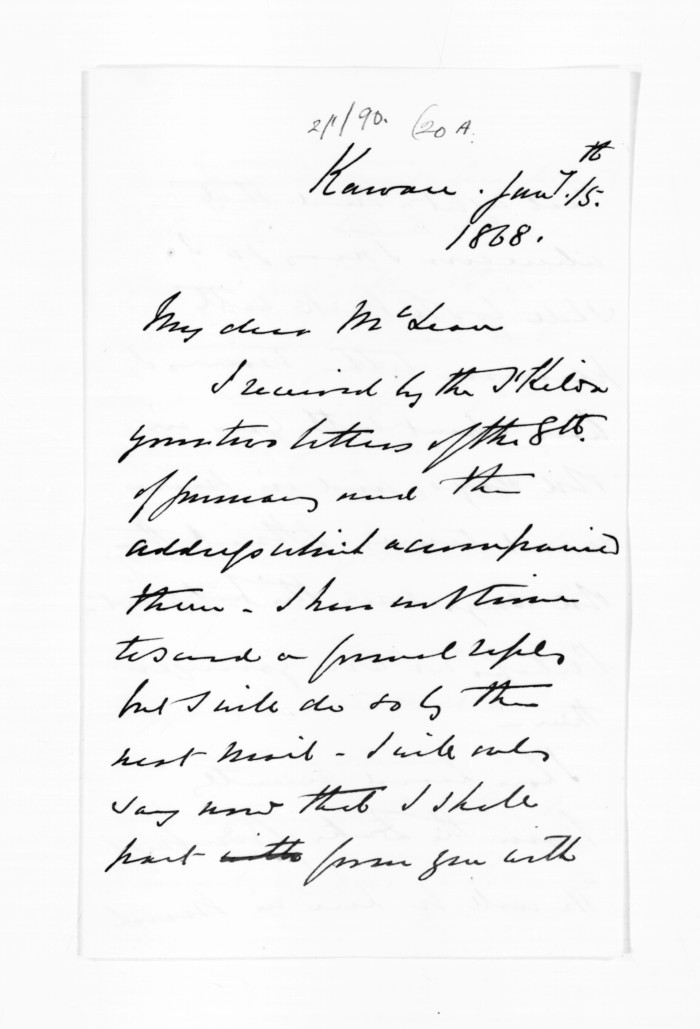 2/1/90. (20 A.
Kawau. Jany. 15th
1868.
My dear McLean
I received by the St Kilda
your two letters of the 8th.
of January and the
address which accompanied
them - I have not time
to send a formal reply
but I will do so by the
next mail - I will only
say now that I shall
part with from you with